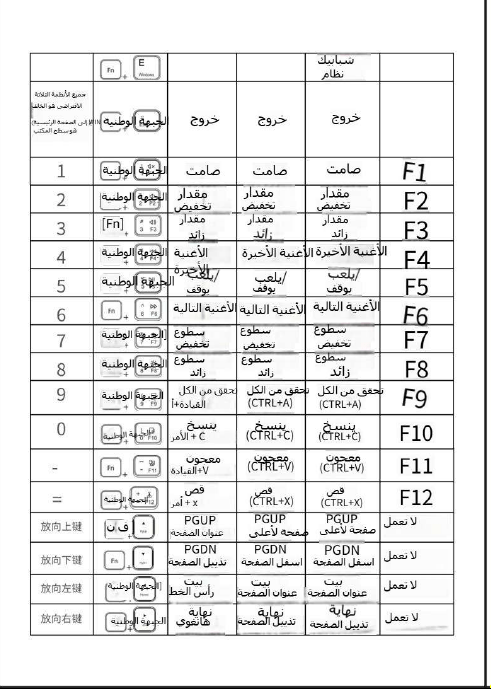 Fn + E Windows شبابيك
نظام
جميع الأنظمة الثلاثة
الافتراضي هو الخالف
الجبهة الوطنية خروج خروج خروج
1 الجبهة الوطنية صامت صامت صامت F1
2 الجبهة الوطنية مقدار مقدار مقدار F2
تخفيض تخفيض تخفيض
3 [Fn] مقدار مقدار مقدار F3
زائد زائد زائد
4 الجبهة الوطنية الأغنية الأغنية الأخيرة الأغنية الأخيرة F4
الأخيرة
5 الجبهة الوطنية يلعب/ يلعب/ يلعب/ F5
يوقف يوقف يوقف
6 Fn الأغنية التالية الأغنية التالية الأغنية التالية F6
7 الجبهة الوطنية سطوع سطوع سطوع F7
تخفيض تخفيض تخفيض
8 الجبهة الوطنية سطوع سطوع سطوع F8
زائد زائد زائد
9 الجبهة الوطنية تحقق من الكل تحقق من الكل تحقق من الكل F9
القيادة+أ (CTRL+A) (CTRL+A)
0 الجبهة الوطنية ينسخ ينسخ ينسخ F10
الأمر + C (CTRL+C) (CTRL+C)
- Fn معجون معجون معجون F11
القيادة+V (CTRL+V) (CTRL+V)
= الجبهة الوطنية قص قص قص F12
أمر + x (CTRL+X) (CTRL+X)
放向上键 ف ن PGUP PGUP PGUP لا تعمل
عنوان الصفحة صفحه لأعلى صفحة لأعلى
放向下键 Fn PGDN PGDN PGDN لا تعمل
تذييل الصفحة اسفل الصفحة اسفل الصفحة
放向左键 الجبهة الوطنية بيت بيت بيت لا تعمل
رأس الخط عنوان الصفحة عنوان الصفحة
放向右键 الجبهة الوطنية نهاية نهاية نهاية لا تعمل
هانغوي تذييل الصفحة تذييل الصفحة